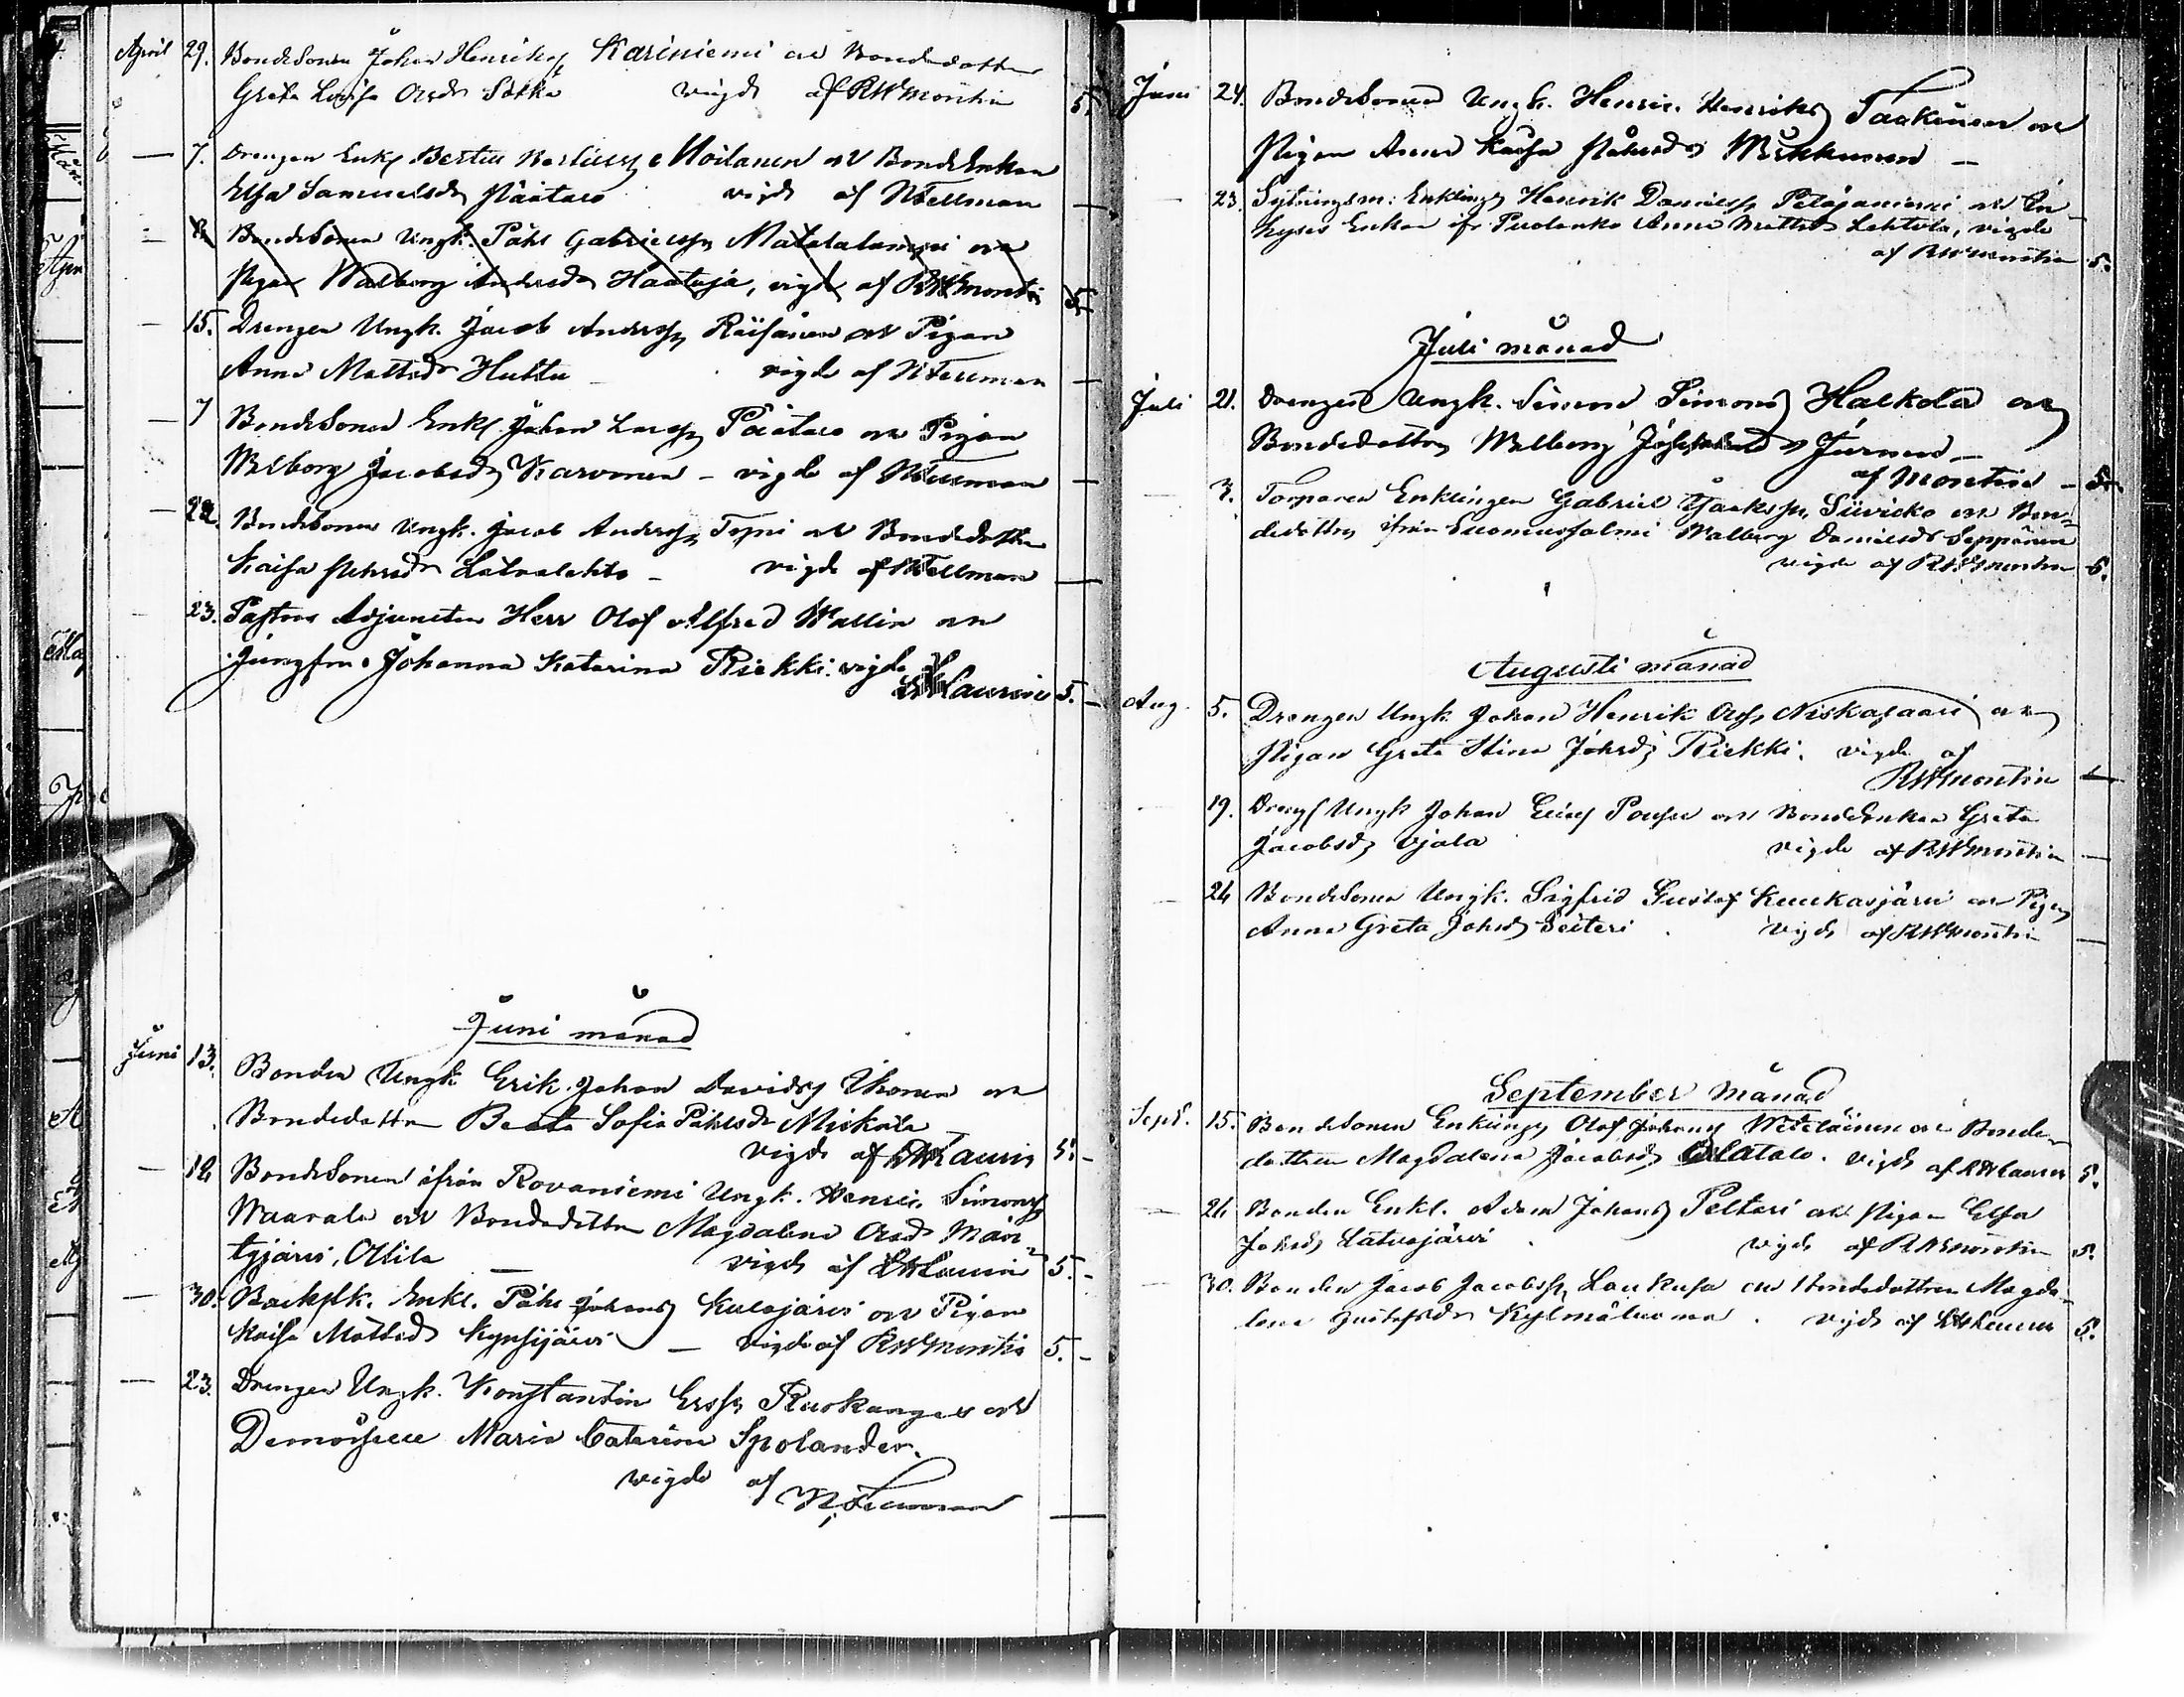 April 29. Bondesonen Johan Henrikss Kariniemi och Bondedottern
Greta Lovisa Olsdr Sotka vigde af RWMontin 5.
— 7. Drengen Enkl Bertil Bertilss Moilanen och BondeEnkan
Elsa Samuelsdr Päätalo vigde af NFellman —
Bondesonen Ungk. Påhl Gabrielss Matalalampi och
Pigan Walborg Andersdr Haataja, vigde af RWMontin 5
— 15. Drengen Ungk. Jacob Anderss Räisänen och Pigan
Anna Mattsdr Huttu vigde af NFellman —
— 7 Bondesonen Enkl. Johan Larss Päätalo och Pigan
Walborg Jacobsdr Karvonen — vigde af NFellman —
— 22. Bondesonen Ungk. Jacob Anderss Topi och Bondedottern
Kaisa Petersdr Latvalehto — vigde af NFellman —
23. Pastors Adjuncten Herr Olof Alfred Wallin och
Jungfru Johanna Katarina Riekki. vigde
Laurin 5. —
Juni månad
Juni 13. Bonden Ungk Erik Johan Davidss Ukonen och
Bondedottern Beata Sofia Påhlsdr Mickola
vigde af Laurin 5. —
— Bondesonen ifrån Rovaniemi Ungk. Henric Simonss
Waarala och Bondedottern Magdalena Olsdr Män
tyjärvi, Ollila — vigde af Laurin 5. —
— 30. Enkl. Påhl Johanss Kulojärvi och Pigan
Kaisa Mattsdr Kynsijärvi — vigde af RWMontin 5. —
— 23. Drengen Ungk. Konstantin Erss Ruokangas och
Demoiselle Maria Catarina Spolander.
vigde af
NFellman —
Juni 24. Bondesonen Ungk. Henric Henrikss Taskinen och
Pigan Anna Kaisa Påhlsdr Mikkonen —
23. Sytningsm: Enklingen Henrik Danielss Petäjäniemi och In-
hyses Enkan ifr Puolanka Anna Mattsdr Lehtola, vigde
af RWMontin 5.
Juli månad
Juli 21. Drengen Ungk. Simon Simonss Halkola och
Bondedottern Walborg Jurmu —
af Montin — 5.
— 7. Torparen Enklingen Gabriel Isaksson Siivikko och Bon-
dedottern ifrån Suomussalmi Walborg Danielsdr Seppänen
vigde af RWMontin 5.
Augusti månad
Aug. 5. Drengen Ungk Johan Henrik Olss Niskasaari och
Pigan Greta Stina Johsdr Riekki. vigde af
RWMontin —
19. Dreng Ungk Johan Ericss Pousu och BondeEnkan Greta
Jacobsdr Ojala vigde af RWMontin —
— 26 Bondesonen Ungk. Sigfrid Gustaf Kuukasjärvi och Pigan
Anna Greta Johsdr Seiteri . vigde af RWMontin —
September månad
Sept. 15. Bondesonen Enklingen Olof Johanss Määttänen och Bonde-
dottern Magdalena Jacobsdr Alatalo. vigde af Laurin 5.
— 26 Bonden Enkl. Adam Johanss Peltari och Pigan Elsa
Johsdr Latvajärvi . vigde af RWMontin 5.
— 30. Bonden Jacob Jacobss Laukusa och Bondedottren Magda-
lena Gustafsdr Kylmäluoma . vigde af Laurin 5.